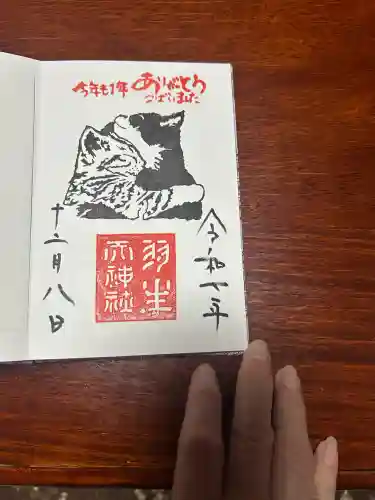 今年も1年ありがとう
ございました
令和七年
羽生
天神社
十二月八日